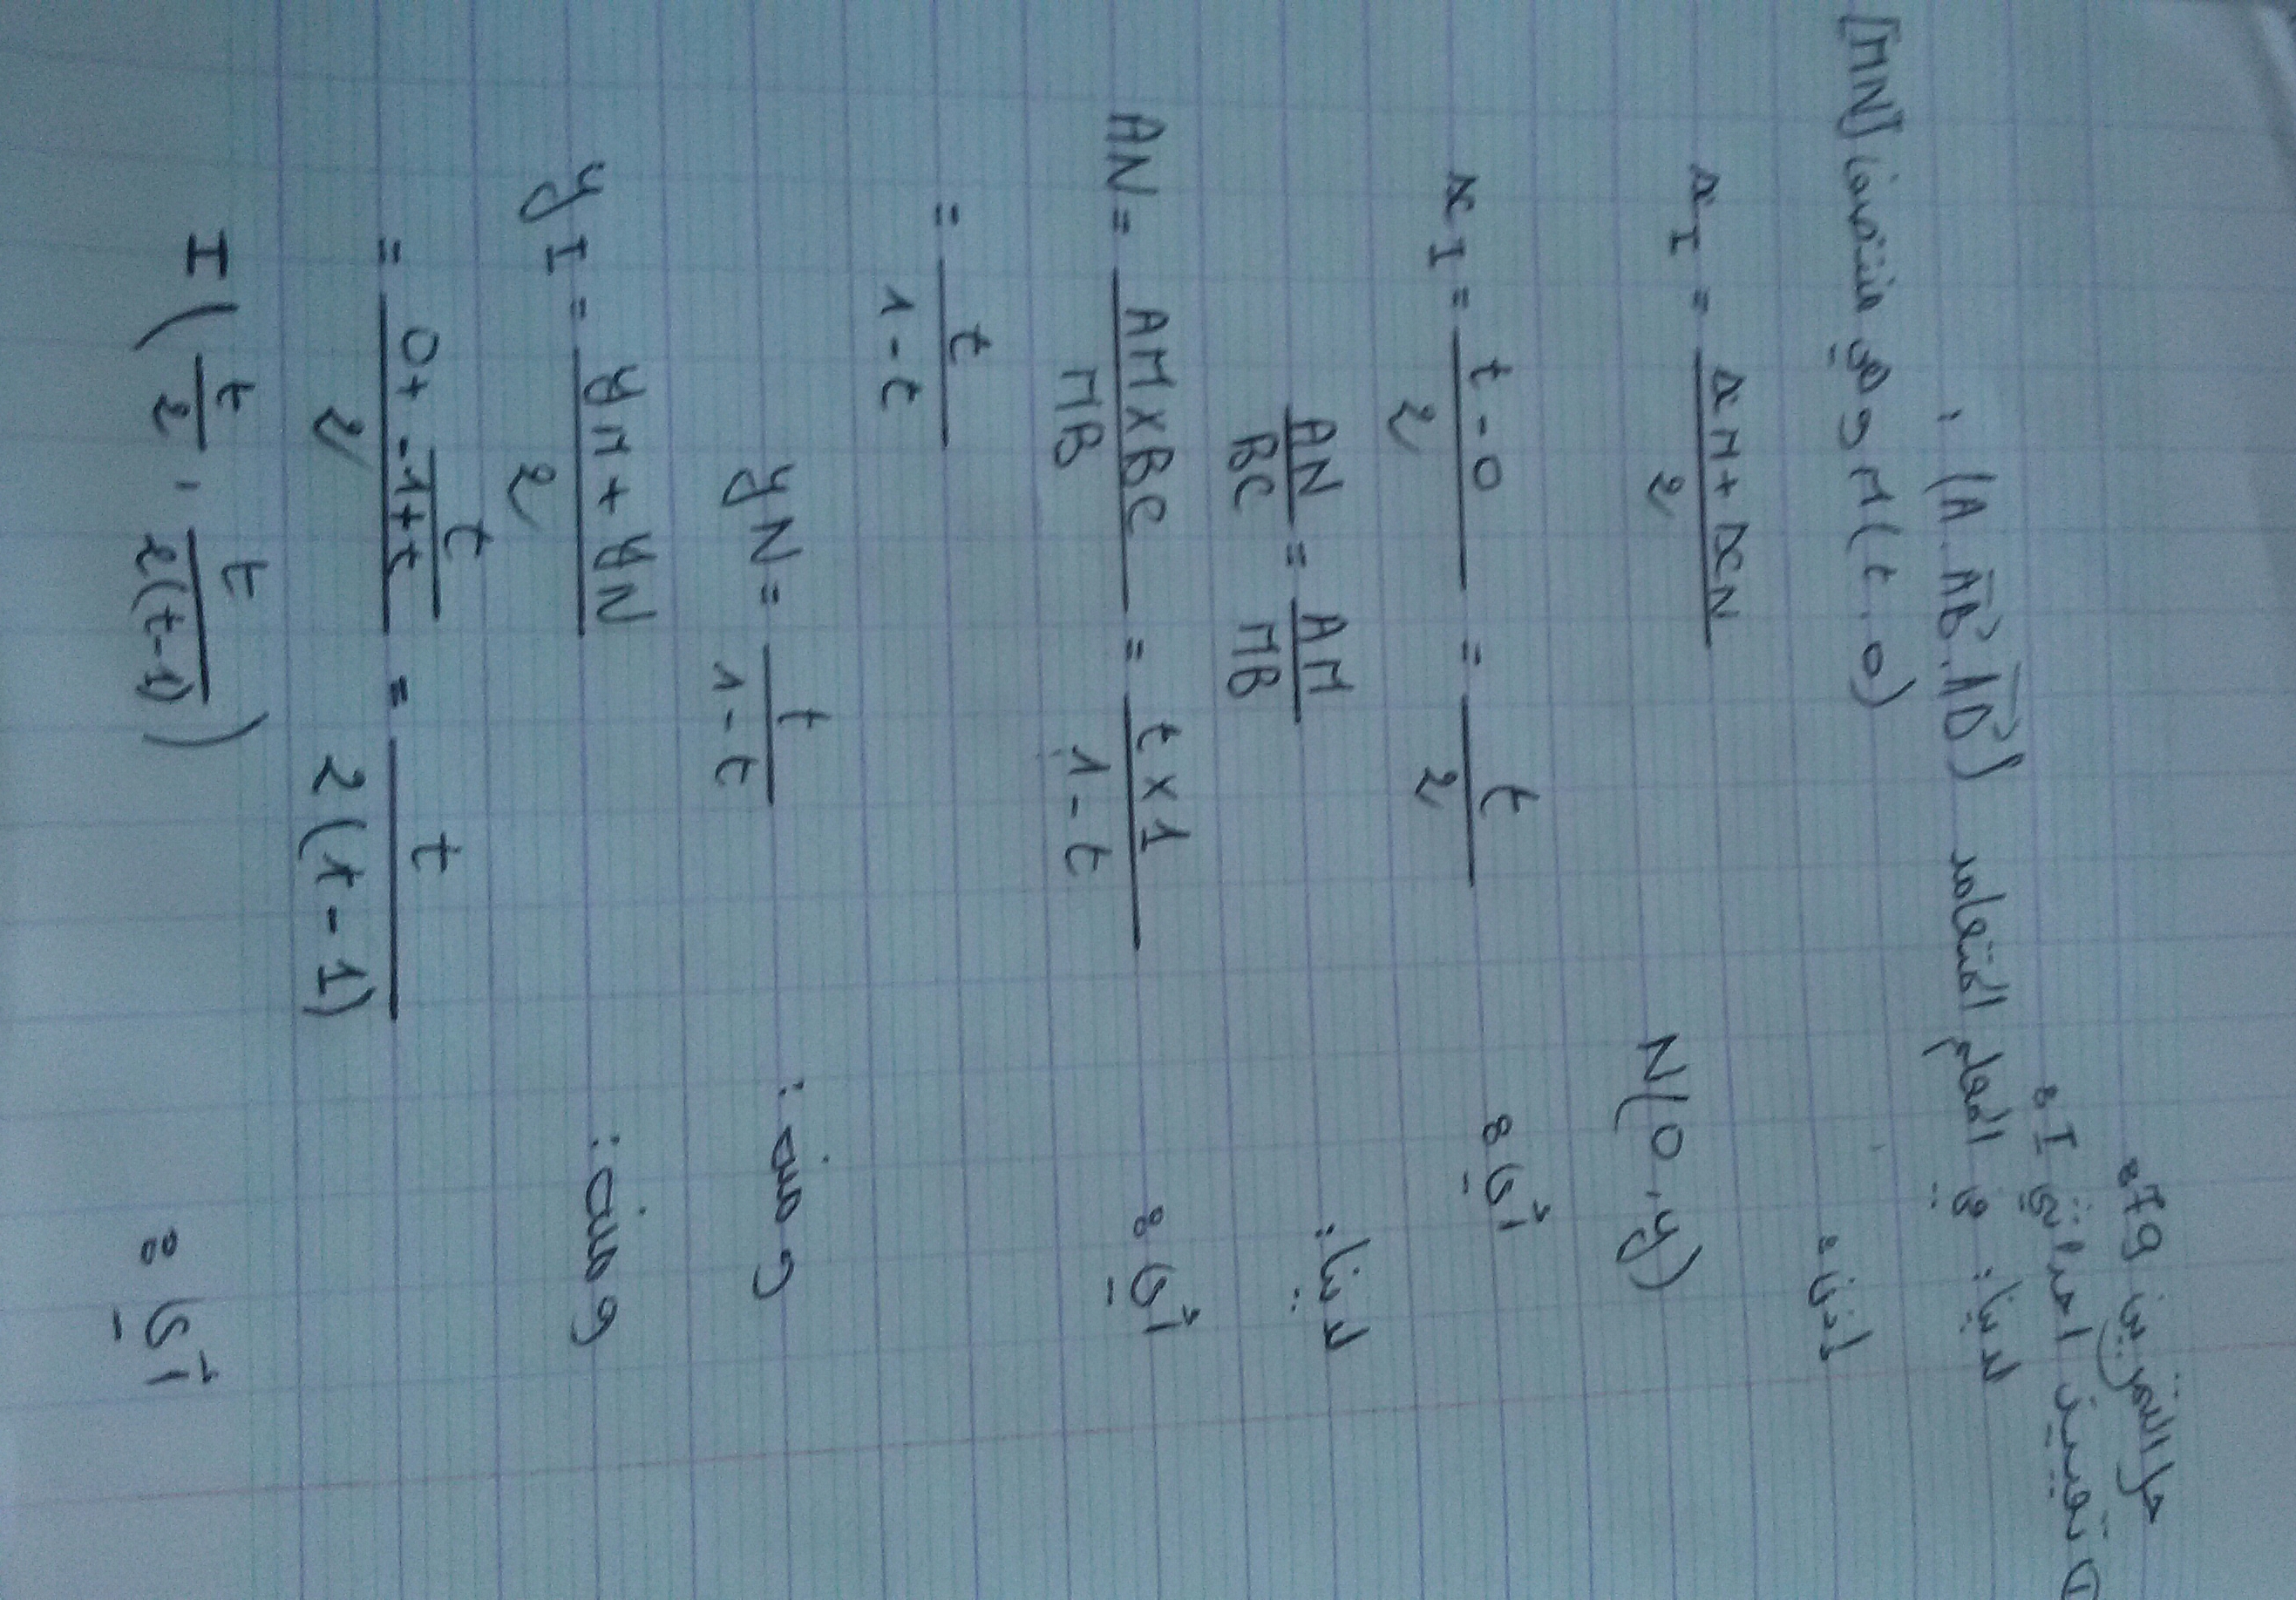 حل التمرين 79:
① تعيين احداثي I:
لدينا: في المعلم المتعامد (A. \overrightarrow{AB}. \overrightarrow{AD}) :
M(t, 0) و هي منتصف [MN]
إذن:
x_I = \frac{x_M + x_N}{2}
N(0, y)
أي: x_I = \frac{t - 0}{2} = \frac{t}{2}
لدينا: \frac{AN}{BC} = \frac{AM}{MB}
أي: AN = \frac{AM × BC}{MB} = \frac{t × 1}{1 - t}
= \frac{t}{1 - t}
و منه: y_N = \frac{t}{1 - t}
و منه: y_I = \frac{y_M + y_N}{2}
= \frac{0 + \frac{t}{-1 + t}}{2} = \frac{t}{2(t - 1)}
أي: I(\frac{t}{2}, \frac{t}{2(t - 1)})